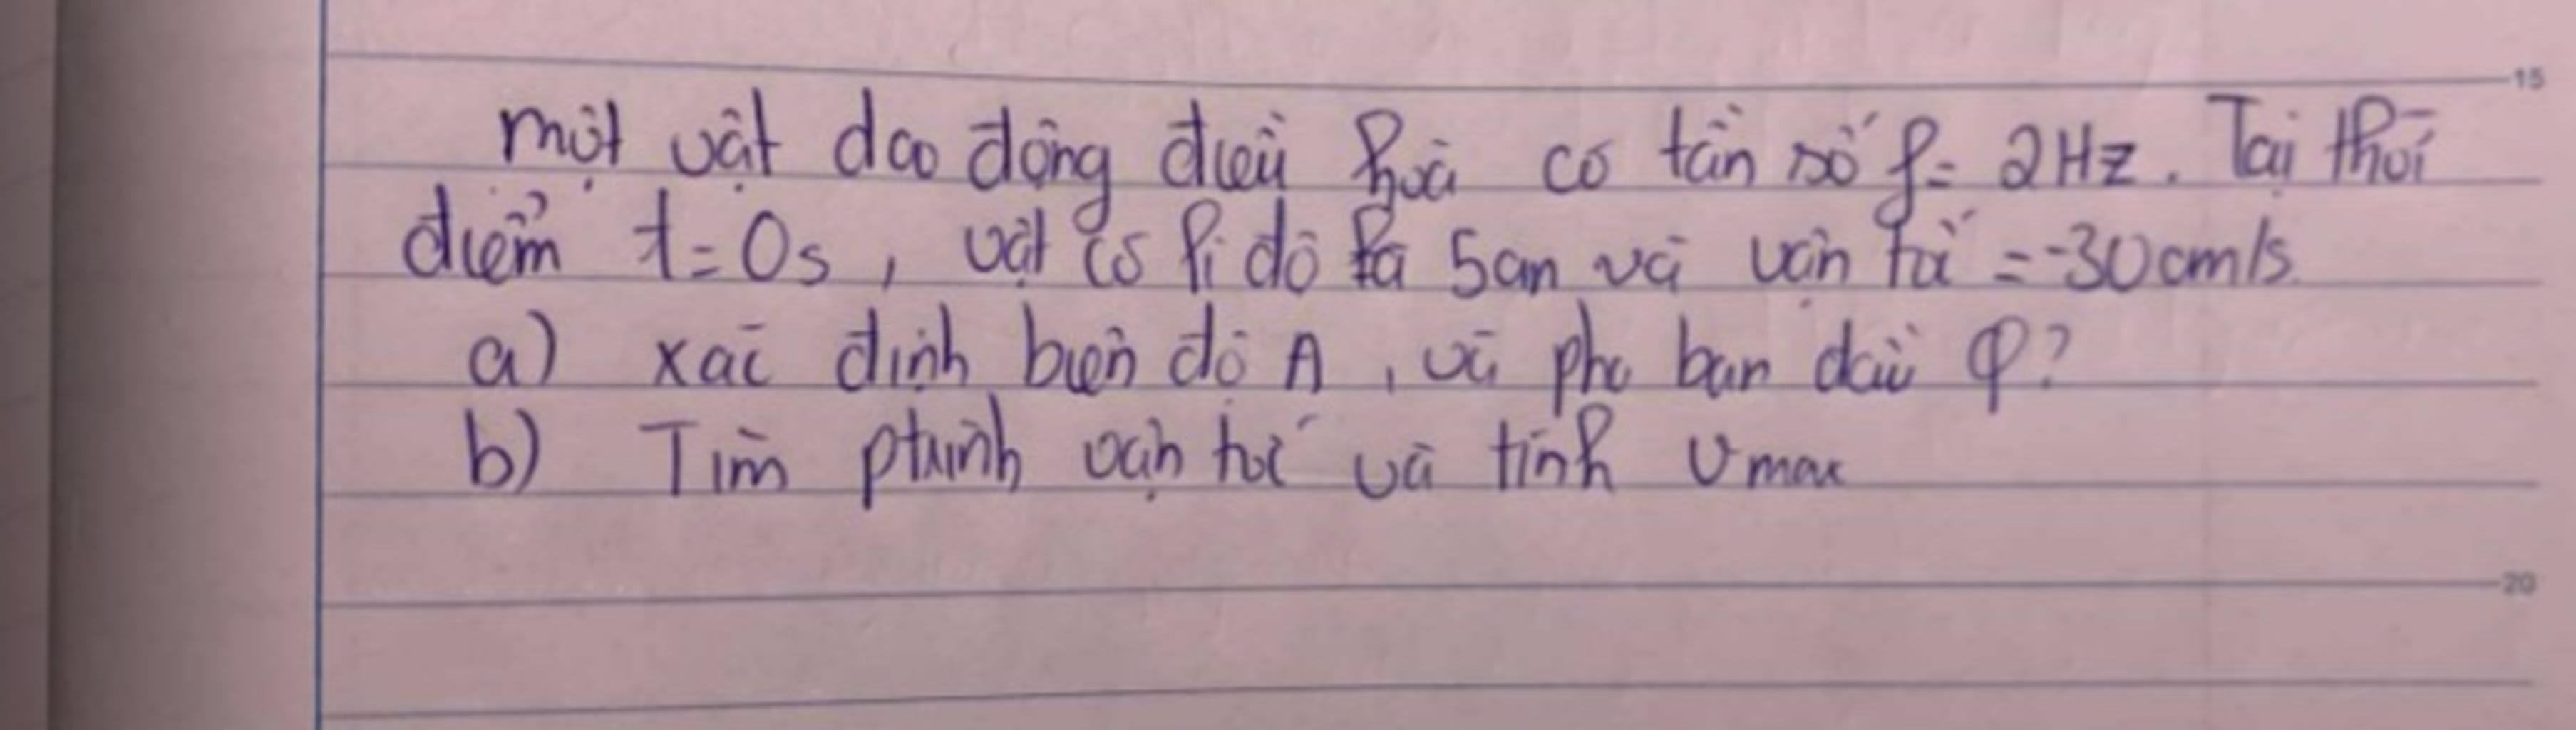 15
một vật dao động điều hoà có tần số f = 2Hz. Tại thời
điểm t = 0s, vật có li độ là 5cm và vận tốc = -30cm/s.
a) xác định biên độ A, và pha ban đầu φ?
b) Tìm ptrình vận tốc và tính v max
20